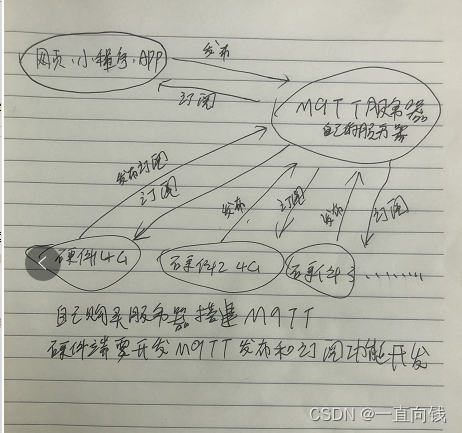 网页·小程序·APP
发布
订阅
MQTT服务器
自己的服务器
发布订阅
订阅
发布
订阅
发布
订阅
硬件1 4G
硬件2 4G
硬件3
........
自己购买服务器搭建MQTT
硬件端要开发MQTT发布和订阅功能开发
CSDN @一直向钱